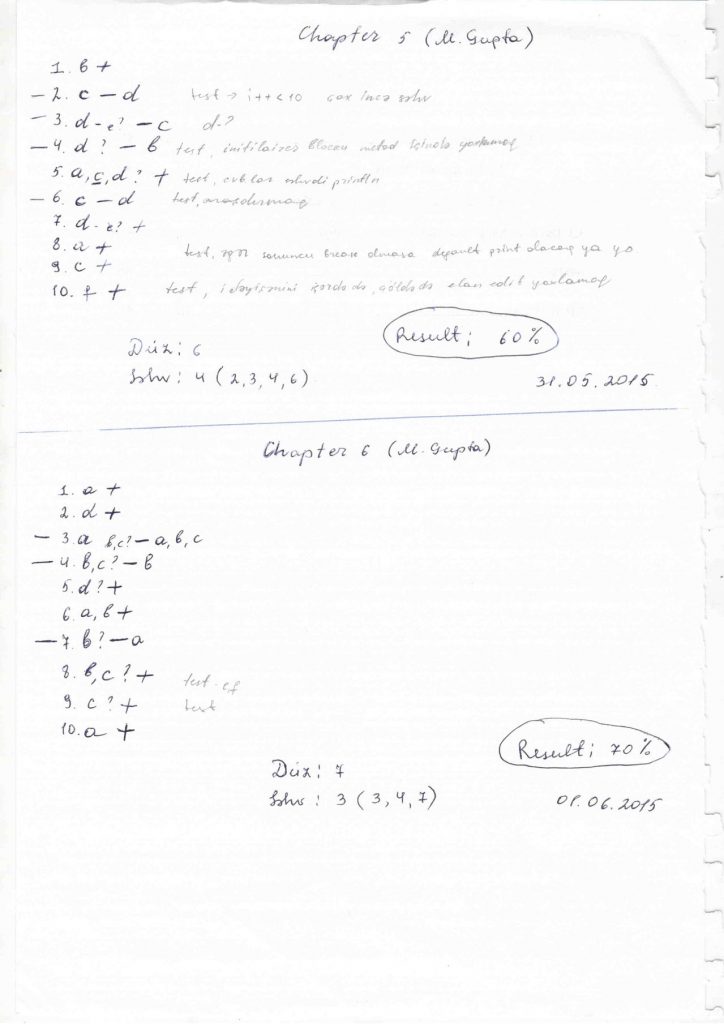 Chapter 5 (M. Gupta)
1. b +
— 2. c — d test → i++<10 cox ince səhv
— 3. d - e? — c d-?
— 4. d ? — b test, metod
5. a, c, d ? + test, println
— 6. c — d test,
7. d - e? +
8. a + test, əgər sonuncu break olmasa default print olacaq ya yo
9. c +
10. f + test,
Result: 60%
Düz: 6
Səhv: 4 (2,3,4,6)
31.05.2015
Chapter 6 (M. Gupta)
1. a +
2. d +
— 3. a b,c? — a, b, c
— 4. b, c? — b
5. d? +
6. a, b +
— 7. b? — a
8. b, c ? + test
9. c ? + test
10. a +
Result: 70%
Düz: 7
Səhv: 3 (3,4,7)
01.06.2015